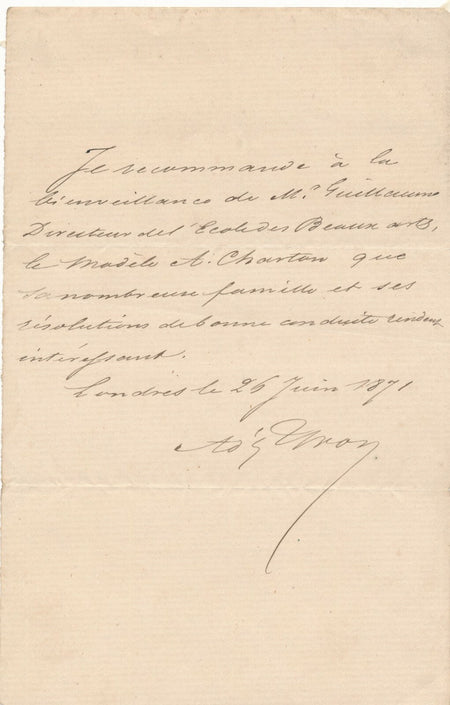 Je recommande à la
bienveillance de Mr. Guillaume
Directeur de l'Ecole des Beaux arts,
le Modèle A. Charton que
sa nombreuse famille et ses
résolutions de bonne conduite rendent
intéressant.
Londres le 26 Juin 1871
Ad. Yvon